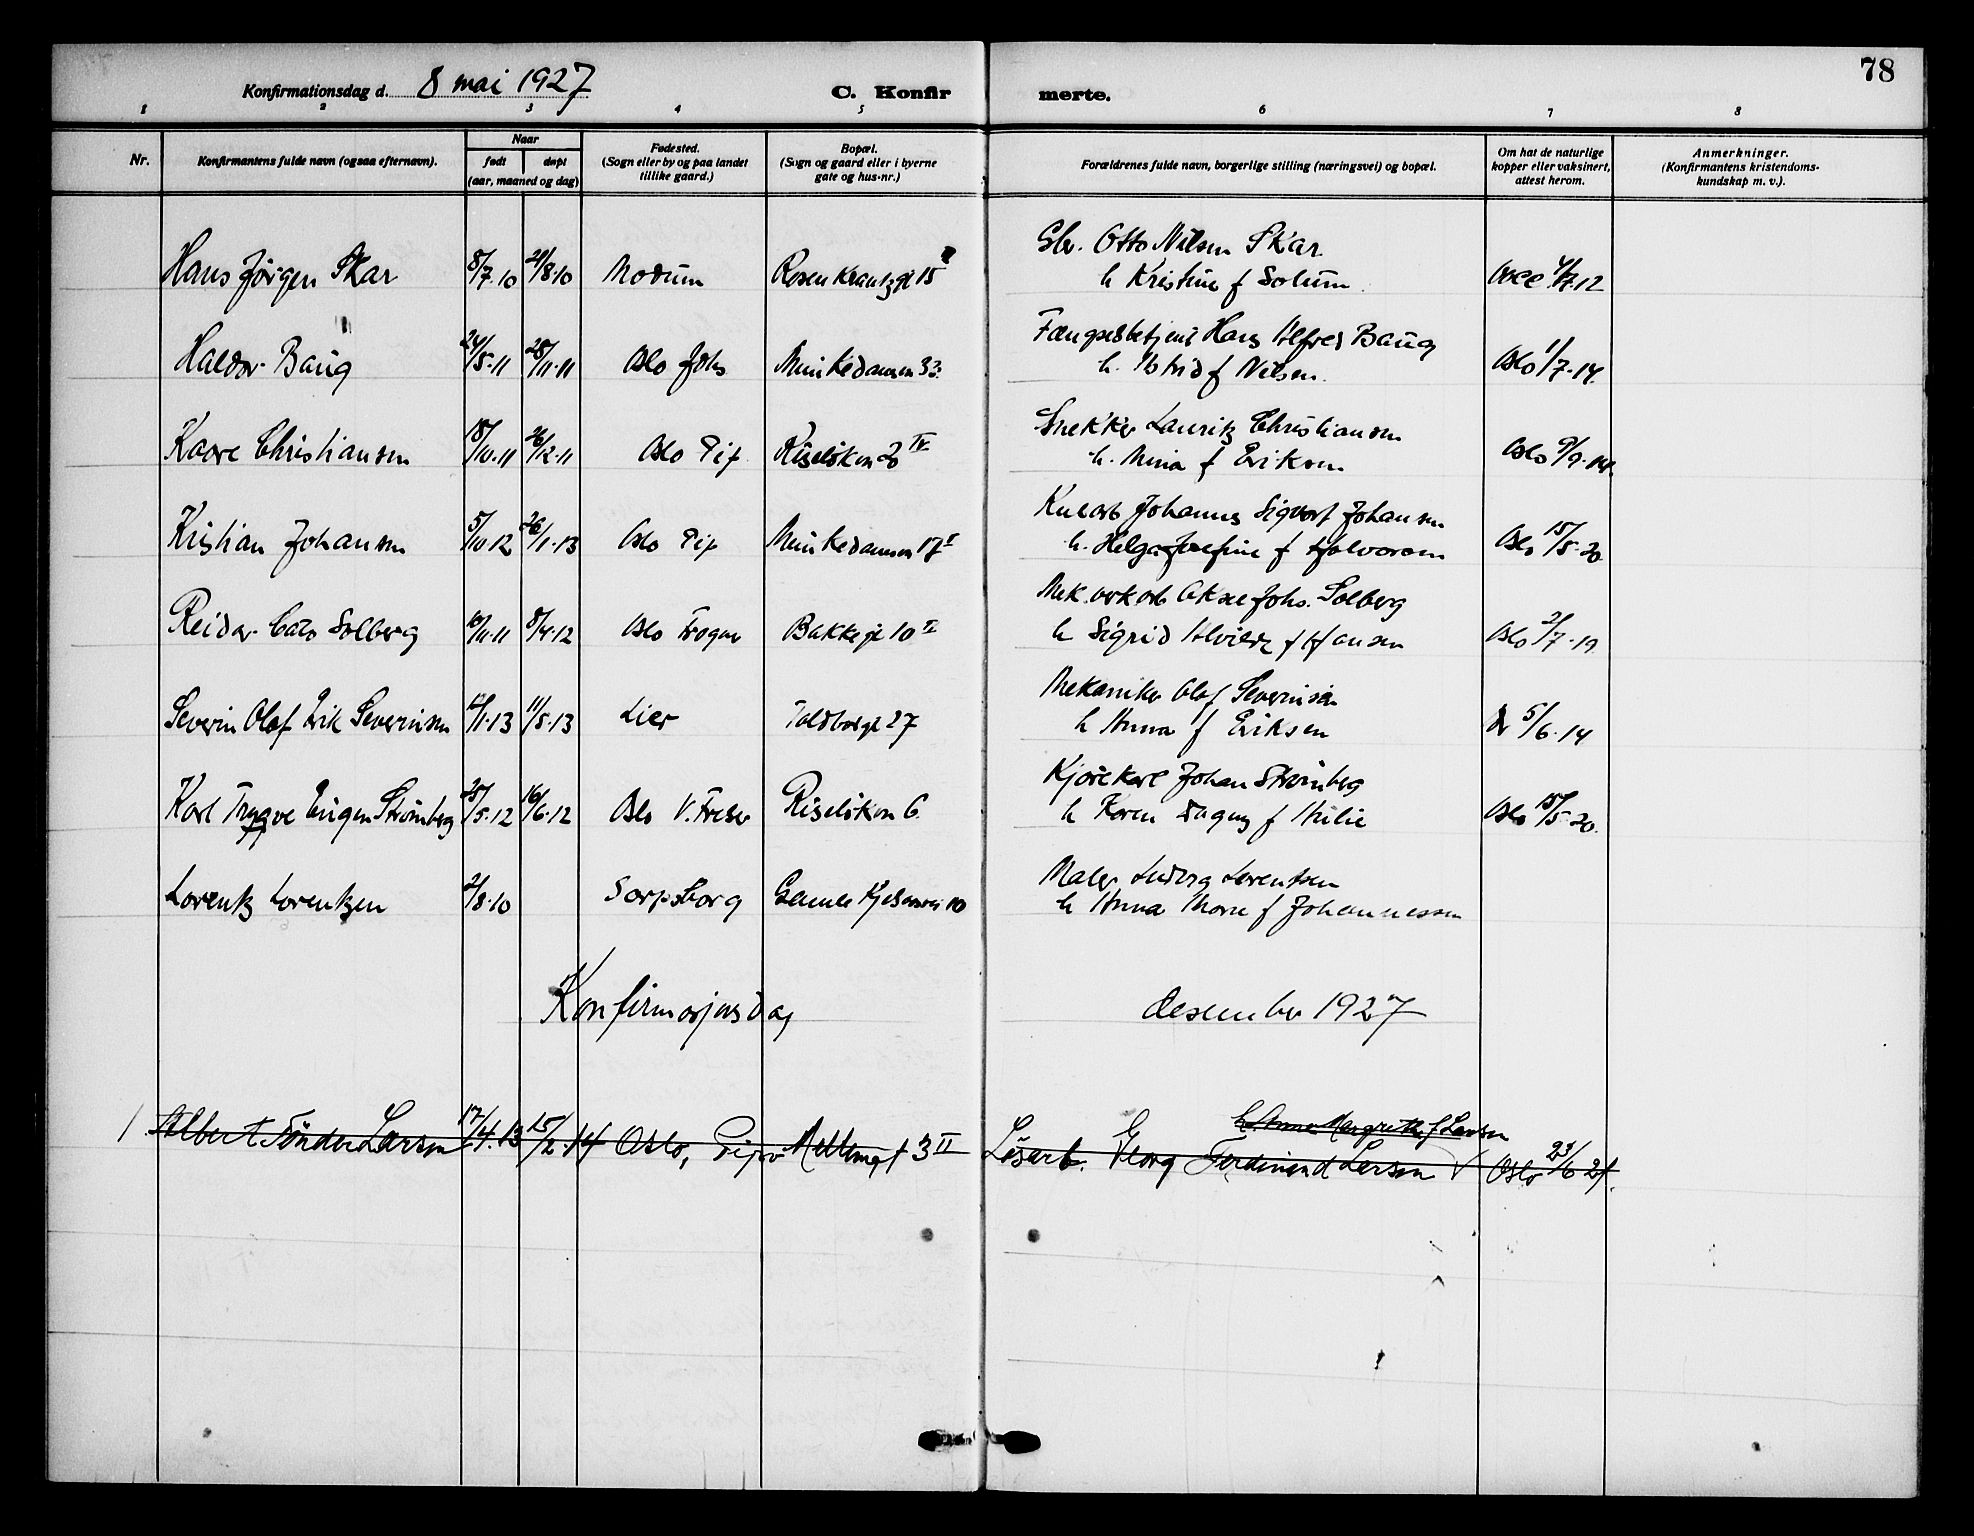 78
Konfirmationsdag d. 8 mai 1927 C. Konfir merte.
1 2 3 4 5 6 7 8
Nr. Konfirmantens fulde navn (ogsaa efternavn). Naar født døpt (aar, maaned og dag) Fødested. (Sogn eller by og paa landet tillike gaard.) Bopæl. (Sogn og gaard eller i byerne gate og hus-nr.) Forældrenes fulde navn, borgerlige stilling (næringsvei) og bopæl. Om hat de naturlige kopper eller vaksinert, attest herom. Anmerkninger. (Konfirmantens kristendoms-kundskap m. v.).
Otto Nilsen Skar
Hans Jörgen Skar 8/7.10 21/8.10 Modum Rosenkrantzgt 15
h Kristine f Solum 4/7.12
Fængselsbetjent Hans Alfred Baug
Haldor Baug 24/8.11 28/11.11 Oslo Johs Munkedamsvn 33.
h. Astrid f Nilsen. Oslo 1/7.14.
Snekker Lauritz Christiansen
Kaare Christiansen 18/10.11 26/12.11 Oslo Pip Ruseløkvn 20 IV
h. Mina f Eriksen Oslo 9/9.14.
Johannes Sigvart Johansen
Kristian Johansen 5/10.12 26/1.13 Oslo Pip Munkedamsvn 17 I
h. Helga Josefine f Halvorsen Oslo 15/5.20
Mek. verkarb Aksel Johs. Solberg
Reidar Cato Solberg 10/11.11 8/4.12 Oslo Frogner Bakkegt 10 II
h Sigrid Alvilde f Hansen Oslo 2/7.19
Mekaniker Olaf Severinsen
Severin Olaf Erik Severinsen 12/1.13 11/5.13 Lier Toldbodgt 27
h Anna f Eriksen 5/6.14
Kjørekarl Johan Strømberg
Karl Trygve Eugen Strömberg 25/5.12 16/6.12 Oslo V. Frelser Ruseløkvn 6
h Karen Dagny f Oslo 15/5.20.
Maler Ludvig Lorentsen
Lorentz Lorentzen 2/8.10 Sarpsborg Gamle Kjelsåsvei 10
h Anna Marie f Johannessen
Konfirmasjonsdag desember 1927
h. Anna Margrethe f Larsen
1 Albert Tönder Larsen 17/4.13 15/2.14 Oslo, Piperv Mellemgt 3 II Løsarb. Georg Ferdinand Larsen Oslo 23/6 21.